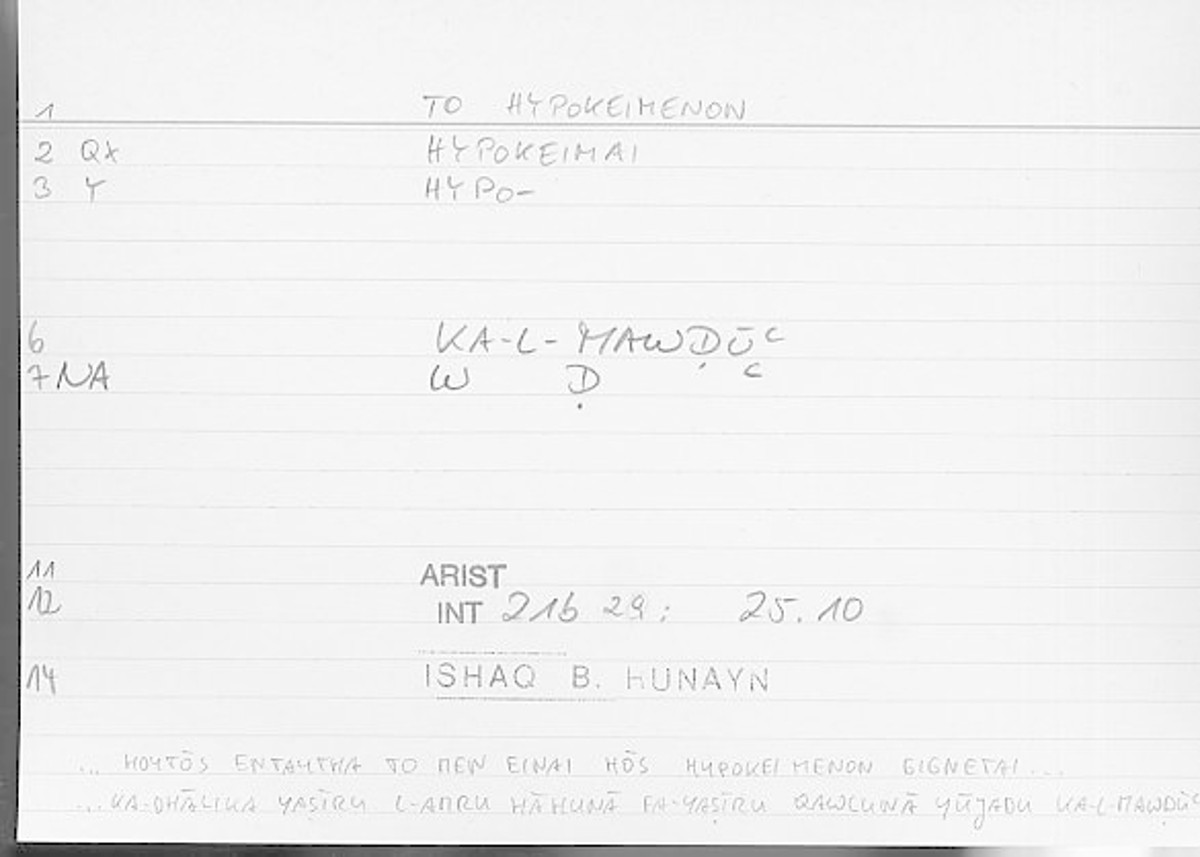 1 TO HYPOKEIMENON
2 QX HYPOKEIMAI
3 Y HYPO-
6 KA-L-MAWḌŪʿ
7 NA W Ḍ ʿ
11 ARIST
12 INT 21b 29; 25.10
14 ISHAQ B. HUNAYN
... HOYTŌS ENTAYTHA TO MEN EINAI HŌS HYPOKEIMENON GIGNETAI ...
... KA-DHĀLIKA YAṢĪRU L-AMRU HĀHUNĀ FA-YAṢĪRU QAWLUNĀ YŪJADU KA-L-MAWḌŪʿ